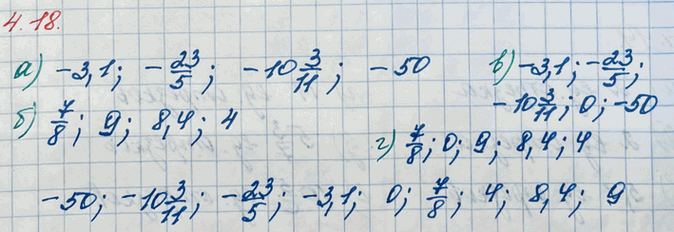 4.18.
а) -3,1; -23/5; -10 3/11; -50
б) 7/8; 9; 8,4; 4
в) -3,1; -23/5;
-10 3/11; 0; -50
г) 7/8; 0; 9; 8,4; 4
-50; -10 3/11; -23/5; -3,1; 0; 7/8; 4; 8,4; 9